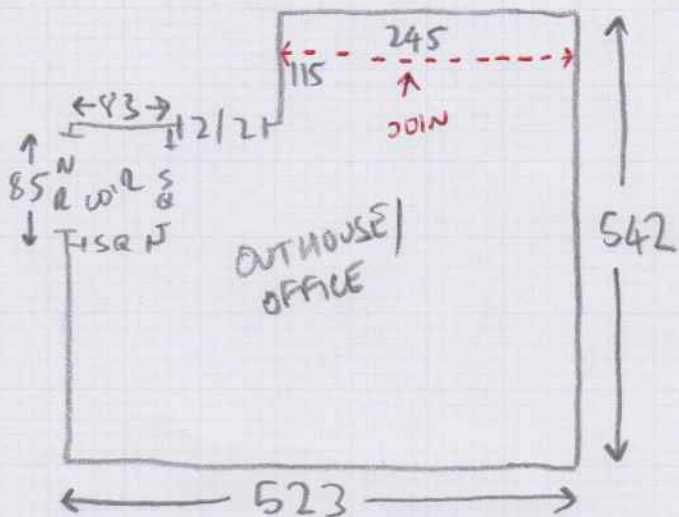 245
115
JOIN
←83→
2/2
85
N
R
SQ
OUTHOUSE/
OFFICE
542
523